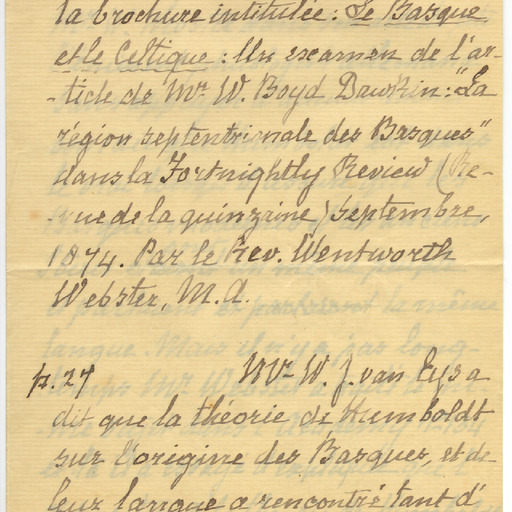 la brochure intitulée: Le Basque
et le Celtique: Un examen de l'ar-
-ticle de Mr. W. Boyd Dawkin: "La
région septentrionale des Basques"
dans la Fortnightly Review (Re-
-vue de la quinzaine) septembre,
1874. Par le Rev. Wentworth
Webster, M.A.
p. 27 Mr. W. J. van Eys a
dit que la théorie de Humboldt
sur l'origine des Basques, et de
leur langue a rencontré tant d'